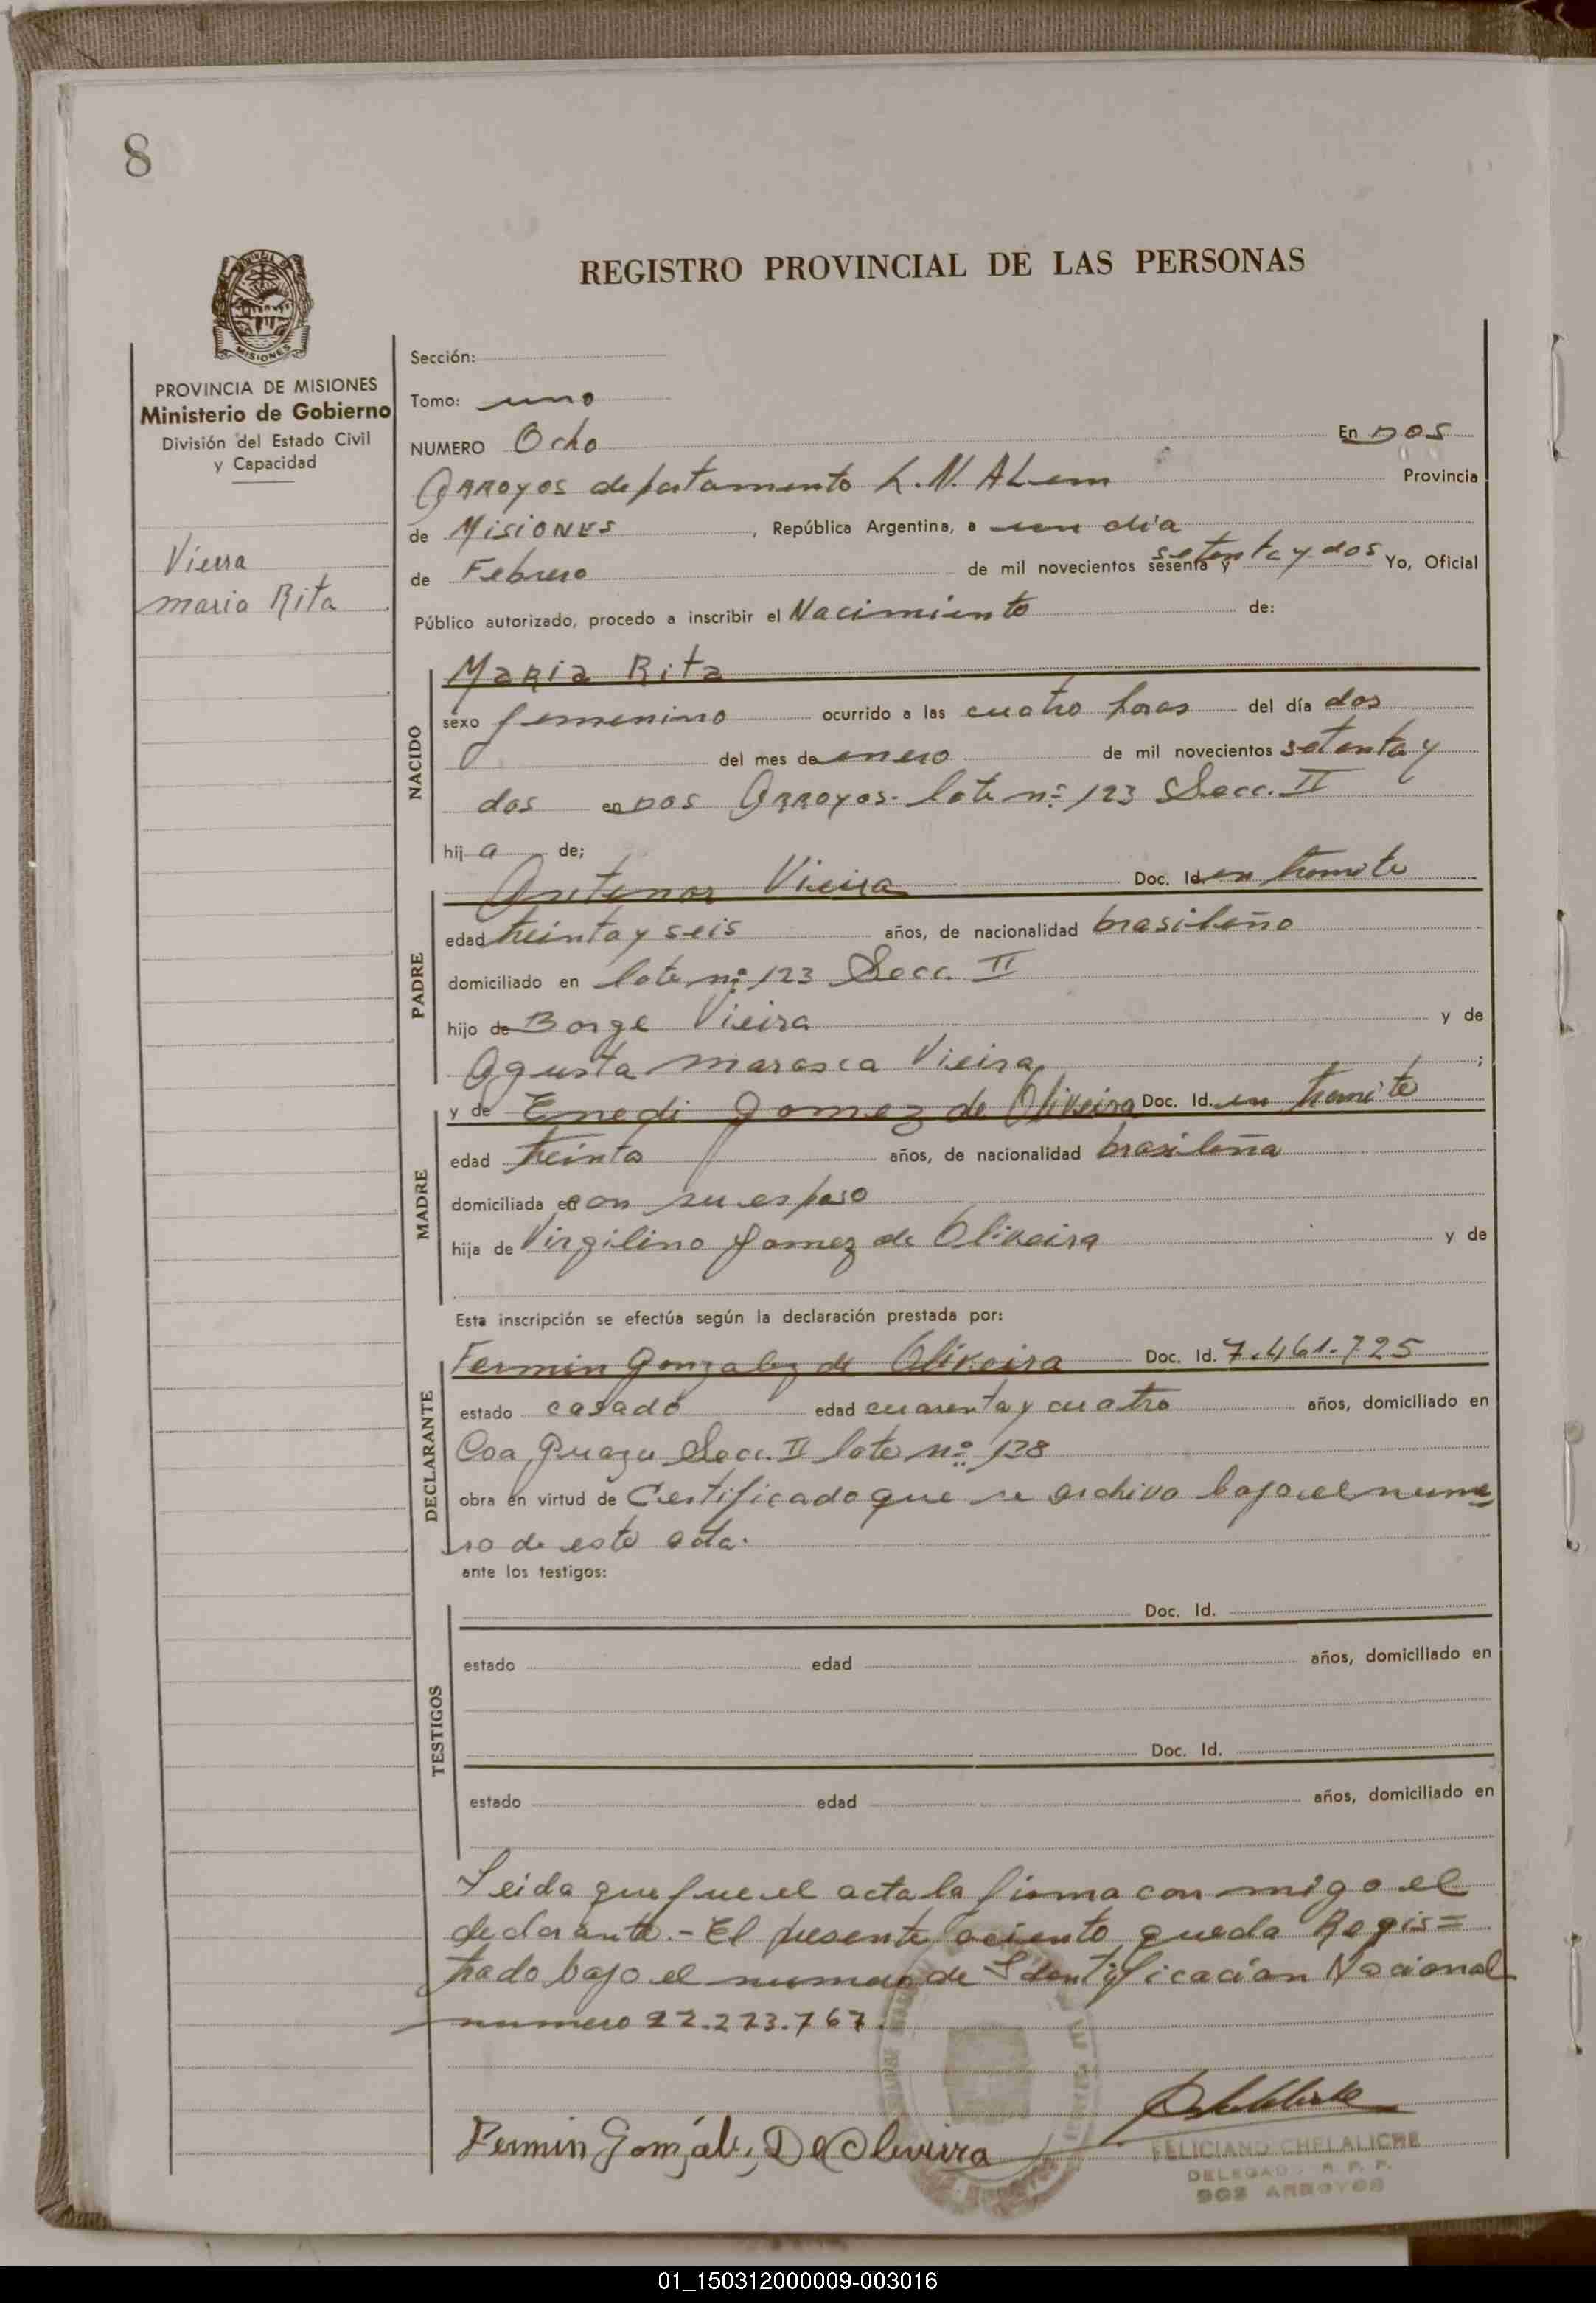 8
REGISTRO PROVINCIAL DE LAS PERSONAS
MISIONES
PROVINCIA DE MISIONES
Ministerio de Gobierno
División del Estado Civil
y Capacidad
Vierra
maria Rita
Sección:
Tomo: uno
NUMERO Ocho En DOS
ARROYOS departamento L.N. ALem Provincia
de MISIONES, República Argentina, a un dia
de Febrero de mil novecientos sesenta y setenta y dos Yo, Oficial
Público autorizado, procedo a inscribir el Nacimiento de:
NACIDO
Maria Rita
sexo femenino ocurrido a las cuatro horas del día dos
del mes de enero de mil novecientos setenta y
dos en DOS ARROYOS- lote nº 123 Secc. II
hij a de;
PADRE
Antenor Vieira Doc. Id. en tramite
edad treinta y seis años, de nacionalidad brasileño
domiciliado en lote nº 123 Secc. II
hijo de Borge Vieira y de
Agusta marasca Vieira;
MADRE
y de Enedi Gomez de Oliveira Doc. Id. en tramite
edad treinta años, de nacionalidad brasileña
domiciliada en con su esposo
hija de Virgilino Gomez de Oliveira y de
Esta inscripción se efectúa según la declaración prestada por:
DECLARANTE
Fermin Gonzalez de Oliveira Doc. Id. 7.461.725
estado casado edad cuarenta y cuatro años, domiciliado en
Coa, Guazu Secc. II lote nº 138
obra en virtud de Certificado que se archiva bajo el nume
ro de esta acta.
ante los testigos:
TESTIGOS
Doc. Id.
estado edad años, domiciliado en
Doc. Id.
estado edad años, domiciliado en
Leida que fue el acta la firma con migo el
declarante.- El presente aciento queda Regis=
trado bajo el numero de Identificacion Nacional
numero 22.223.767.
Fermin Gonzalez De Oliveira
FELICIANO CHELALICHE
DELEGADO R. P. P.
DOS ARROYOS
01_150312000009-003016